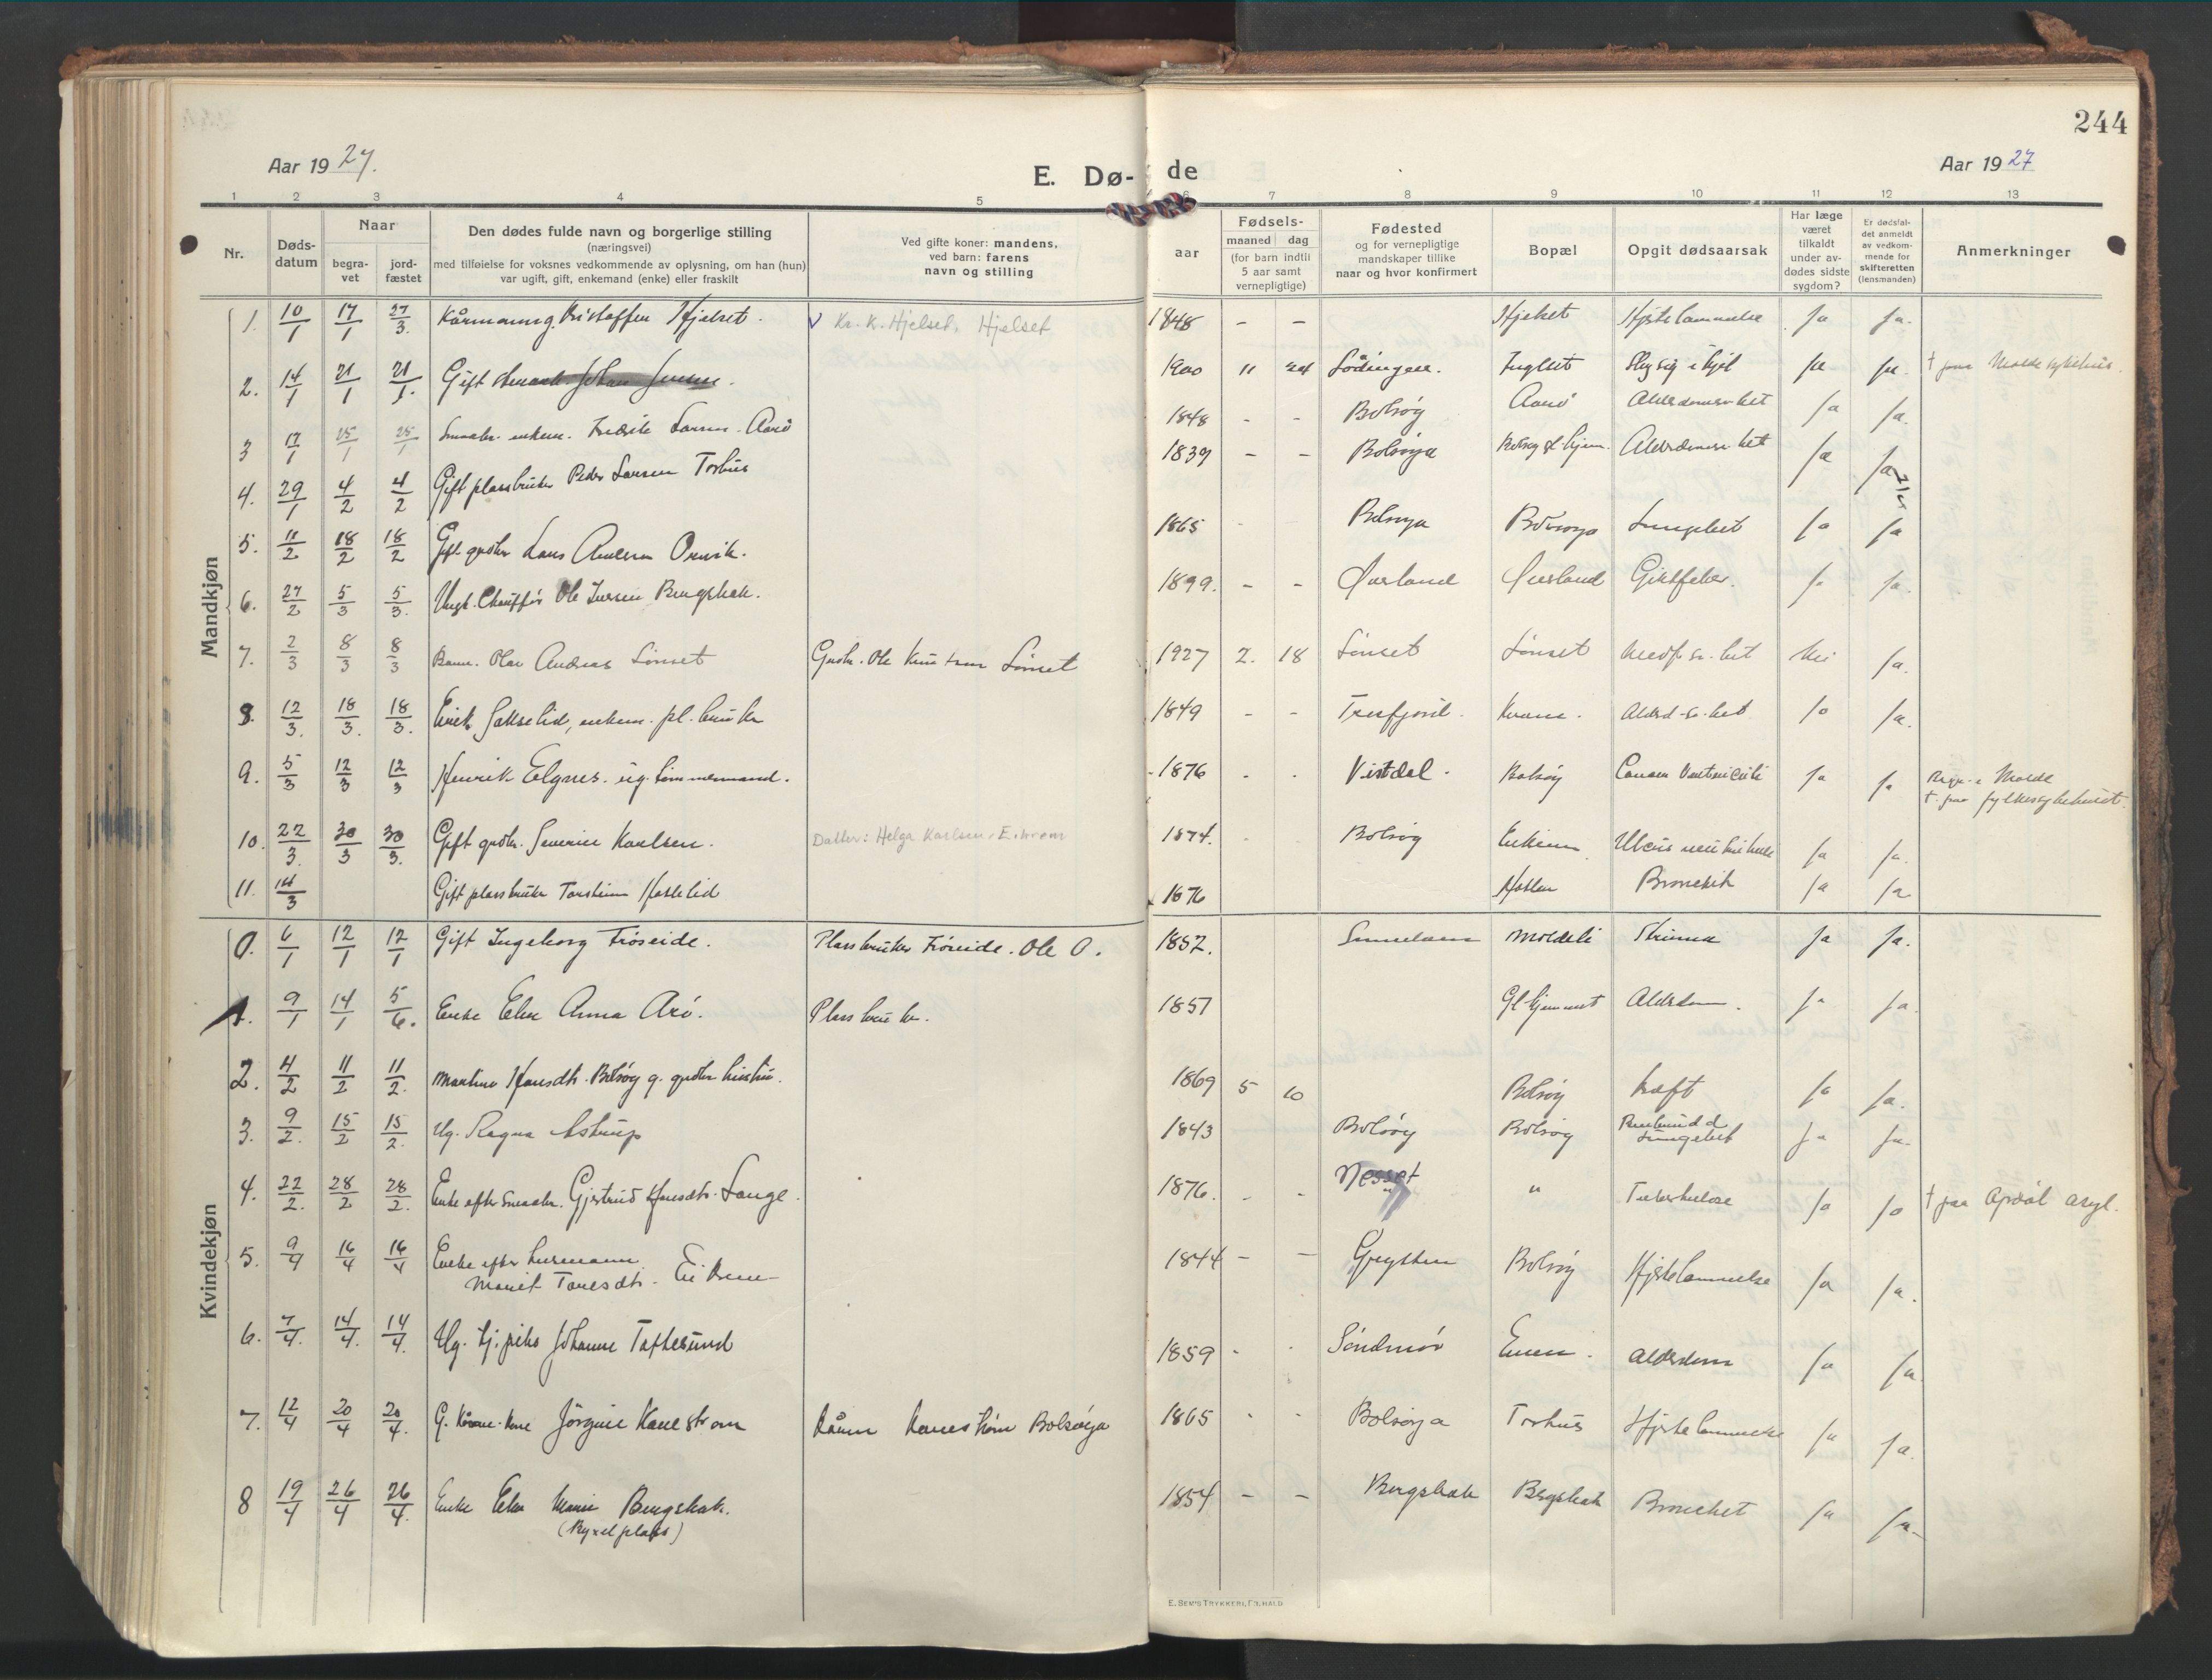 244
Aar 1927.
E. Dø-
de
Aar 1927
1 2 3 4 5 6 7 8 9 10 11 12 13
Nr.
Døds-
datum
Naar
begra-
vet
jord-
fæstet
Den dødes fulde navn og borgerlige stilling
(næringsvei)
med tilføielse for voksnes vedkommende av oplysning, om han (hun)
var ugift, gift, enkemand (enke) eller fraskilt
Ved gifte koner: mandens,
ved barn: farens
navn og stilling
aar
Fødsels-
maaned dag
(for barn indtil
5 aar samt
vernepligtige)
Fødested
og for vernepligtige
mandskaper tillike
naar og hvor konfirmert
Bopæl
Opgit dødsaarsak
Har læge
været
tilkaldt
under av-
dødes sidste
sygdom?
Er dødsfal-
det anmeldt
av vedkom-
mende for
skifteretten
(lensmanden)
Anmerkninger
Mandkjøn
1. 10/1 17/1 27/3. Kårmann g. Kristoffer Hjelset. Kr. K. Hjelset, Hjelset 1848 - - Hjelset Hjertelammelse Ja Ja.
2. 14/1 21/1 21/1. Gift Johan Jensen. 1900 11 24 Lødingen. Ja Ja. † paa Molde sykehus.
3 17/1 25/1 25/1 Smaabr. enkem. Fredrik Larsen Aarø 1848 - - Bolsøy Aarø Alderdomssv.het Ja Ja.
4. 29/1 4/2 4/2 Gift plassbruker Peder Larsen Torhus 1839 - - Bolsøya Bolsøy gl. hjem. Alderdomssv.het Ja Ja
5. 11/2 18/2 18/2 Gift grdbr Lars Andersen 1865 - Bolsøya Bolsøya Lungebet Ja Ja
6. 27/2 5/3 5/3. Ungk. Chauffør Ole Iversen Bergshak. 1899. - - Giktfeber. Ja Ja.
7. 2/3 8/3 8/3 Barn. Olav Andreas Lønset Grdbr. Ole Knutsen Lønset 1927 2. 18 Lønset Lønset Medf. sv.het Nei Ja.
8. 12/3. 18/3. 18/3. Eirik Sakselid, enkem. pl. bruker 1849 - - Tresfjord. Alderd-sv.het Ja Ja.
9. 5/3 12/3 12/3 Henrik Elgnes. ug. tømmermand. 1876 - - Vistdal. Bolsøy Cancer Ventriculi Ja Ja Begr. i Molde
† paa fylkessykehuset.
10. 22/3. 30/3 30/3. Gift grdbr. Severin Karlsen. Datter: Helga Karlsen, Eikrem 1874. - Bolsøy Eikrem Ulcus ventriculi Ja Ja.
11. 14/3 Gift plassbruker Torstein 1876 Bronchit Ja Ja
Kvindekjøn
0. 6/1 12/1 12/1 Gift Ingeborg Frøseide. Plassbruker Frøseide. Ole O. 1852. Moldeli Ja Ja.
1. 9/1 14/1 5/6. Enke Elen Anna Arø. Plassbruker. 1857 Gl.hjemmet Alderdom. Ja Ja.
2. 4/2 11/2 11/2. Martine Hansdtr. Bolsøy g. grdbr hustru. 1869 5 10 Bolsøy Kræft Ja Ja.
3. 9/2. 15/2 15/2. Ug. Ragna Astrup 1843 Bolsøy Bolsøy
Lungebet Ja Ja
4. 22/2. 28/2 28/2. Enke efter smaabr. Gjertrud Hansdtr. Lange. 1876. - - Nesset " Tuberkulose Ja Ja † paa Opdøl asyl.
5. 9/4 16/4 16/4 Enke efter husmann
Marit Toresdtr. Eikrem 1844 - - Grytten Bolsøy Hjertelammelse Ja Ja.
6. 7/4. 14/4. 14/4. Ug. tj.pike Johanne Toftesund 1859 - - Søndmør Alderdom Ja Ja
7. 12/4 20/4 20/4. G. Kårm.-kone Jørgine Kanestrøm Kårm Kanestrøm Bolsøya 1865 - - Bolsøya Torhus Hjertelammelse Ja Ja.
8 19/4 26/4 26/4. Enke Elen Marie Bergshak. 1854 - - Bergshak Bergshak Bronchit Ja Ja-
E. SEM'S TRYKKERI, F.HALD